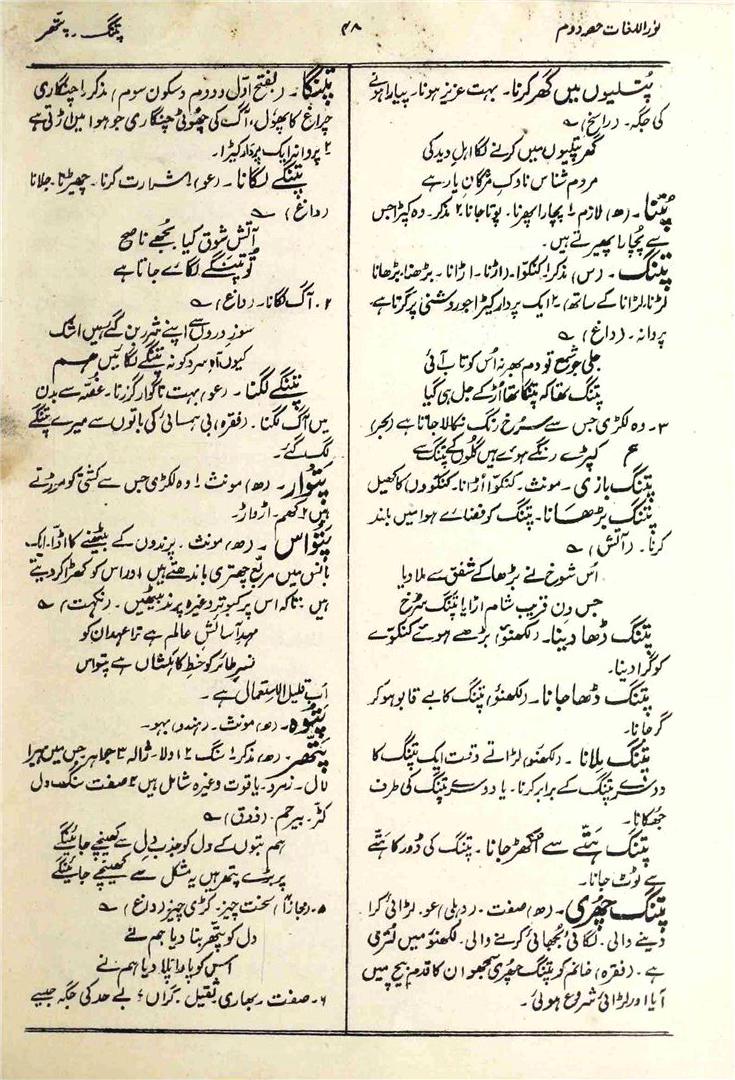 نور اللغات حصہ دوم
۴۸
پتنگ ۔ پتّھر
پُتلیوں میں گھر کرنا۔ بہت عزیز ہونا۔ پیارا ہونے
کی جگہ۔ (راسخ) ؎
گھر پتلیوں میں کرنے لگا اہلِ دید کی
مردم شناس ناوکِ مژگانِ یار ہے
پُتنا۔ (ھ) لازم۔ ۱ پچارا پھرنا۔ پوتا جانا۔ ۲ مذکر۔ وہ کپڑا جس
سے پُچارا پھیرتے ہیں۔
پتنگ۔ (س) مذکر۔ ۱ کنکوّا۔ (اڑنا۔ اڑانا۔ بڑھنا۔ بڑھانا
لڑنا۔ لڑانا کے ساتھ) ۔ ۲ ایک پردار کیڑا جو روشنی پر گرتا ہے
پروانہ۔ (داغ) ؎
جلی جو شمع تو دم بھر نہ اُس کو تاب آئی
پتنگ تھا کہ پتنگا تھا اُڑ کے جل ہی گیا
۳۔ وہ لکڑی جس سے سُرخ رنگ نکالا جاتا ہے (بحر)
ع کپڑے رنگے ہوئے ہیں گُلوں کے پتنگ سے
پتنگ بازی۔ مونث۔ کنکوّا اُڑانا۔ کنکوّوں کا کھیل
پتنگ بڑھانا۔ پتنگ کو فضائے ہوا میں بلند
کرنا۔ (آتش) ؎
اُس شوخ نے بڑھا کے شفق سے ملا دیا
جس دن قریبِ شام اڑایا پتنگ سُرخ
پتنگ ڈھا دینا۔ (لکھنؤ) بڑھے ہوئے کنکوّے
کو گرا دینا۔
پتنگ ڈھا جانا۔ (لکھنؤ) پتنگ کا بے قابو ہو کر
گر جانا۔
پتنگ پلانا۔ (لکھنؤ) لڑاتے وقت ایک پتنگ کا
دوسرے پتنگ کے برابر کرنا۔ یا دوسرے پتنگ کی طرف
جھکانا۔
پتنگ ہتّے سے اُکھڑ جانا۔ پتنگ کی ڈور کا ہتّے
سے ٹوٹ جانا۔
پتنگ چھری۔ (ھ) صفت۔ (دہلی) عو۔ لڑائی کرا
دینے والی۔ لگائی بُجھائی کرنے والی۔ لکھنؤ میں لُتری
ہے۔ (فقرہ) خانم کو پتنگ چھری سمجھو ان کا قدم بیچ میں
آیا اور لڑائی شروع ہوئی۔
پتنگا۔ (بفتح اوّل و دوم و سکون سوم) مذکر۔ ۱ چنگاری
چراغ کا پھول، آگ کی چھوٹی چنگاری جو ہوا میں اڑتی ہے
۲ پروانہ۔ ایک پردار کیڑا۔
پتنگے لگانا۔ (عو) ۱ شرارت کرنا۔ چھیڑنا۔ جلانا
(داغ) ؎
آتشِ شوق کیا بُجھے ناصح
تُو پتنگے لگائے جاتا ہے
۲۔ آگ لگانا۔ (داغ) ؎
سوزِ دروں سے اپنے شرر بن گئے ہیں اشک
کیوں آہِ سرد کو نہ پتنگے لگائیں ہم
پتنگے لگنا۔ (عو) بہت ناگوار گزرنا۔ غصّہ سے بدن
میں آگ لگنا۔ (فقرہ) بی ہمسائی کی باتوں سے میرے پتنگے
لگ گئے۔
پتوار۔ (ھ) مونث۔ ۱ وہ لکڑی جس سے کشتی کو مڑوڑتے
ہیں ۲ کھم۔ اڑواڑ۔
پتواس۔ (ھ) مونث۔ پرندوں کے بیٹھنے کا اڈا۔ ایک
بانس میں مربّع چھتری باندھتے ہیں اور اس کو کھڑا کر دیتے
ہیں تاکہ اس پر کبوتر وغیرہ پرند بیٹھیں۔ (نکہت) ؎
مہدِ آسائشِ عالم ہے ترا عہد ان کو
نسرِ طائر کو خطِ کاہکشاں ہے پتواس
اب قلیل الاستعمال ہے۔
پتوہ۔ (ھ) مونث۔ (ہندو) بہو۔
پتّھر۔ (ھ) مذکر۔ ۱ سنگ۔ ۲ اولا۔ ژالہ ۳ جواہر جس میں ہیرا
لال۔ زمرد۔ یاقوت وغیرہ شامل ہیں ۴ صفت سنگ دل
کٹّر۔ بیرحم۔ (ذوق) ؎
ہم بتوں کے دل کو جذبِ دل سے کھینچے جائینگے
پر بڑے پتھر ہیں یہ مشکل سے کھینچے جائینگے
۵۔ (مجازاً) سخت چیز۔ کڑی چیز (داغ) ؎
دل کو پتّھر بنا دیا ہم نے
اس کو پارا پلا دیا ہم نے
۶۔ صفت (بھاری) ثقیل۔ گراں؛ بے حد کی جگہ جیسے